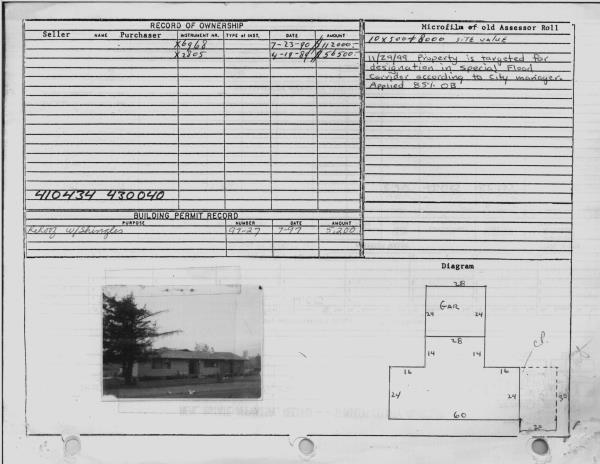 RECORD OF OWNERSHIP
Seller NAME Purchaser INSTRUMENT NR. TYPE of INST. DATE AMOUNT
X6968 7-23-90 $112000.-
X2805 4-19-89 $56500.-
410434 430040
BUILDING PERMIT RECORD
PURPOSE NUMBER DATE AMOUNT
ReRoof w/Shingles 97-27 7-97 5,200
Microfilm of old Assessor Roll
SITE VALUE
11/29/99 Property is targeted for
designation in special Flood
Corridor according to City manager.
Applied 85% OB
Diagram
28
GAR
24 24
28
14 14
16 16
CP.
24 24 30
60
20